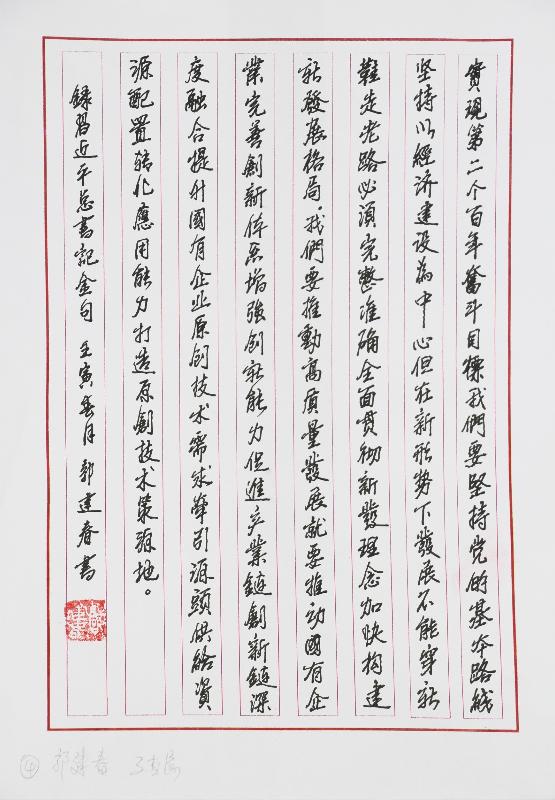 實現第二个百年奮斗目標我們要堅持党的基本路线
坚持以經济建设為中心但在新形势下發展不能穿新
鞋走老路必須完整准确全面贯彻新發理念加快构建
新發展格局。我們要推動高质量發展就要推动國有企
業完善創新体系增強創新能力促進产業鏈創新鏈深
度融合提升國有企业原创技术需求牵引源頭供給資
源配置转化應用能力打造原創技术策源地。
錄習近平总書記金句 壬寅春月 郭建春書
④ 郭建春